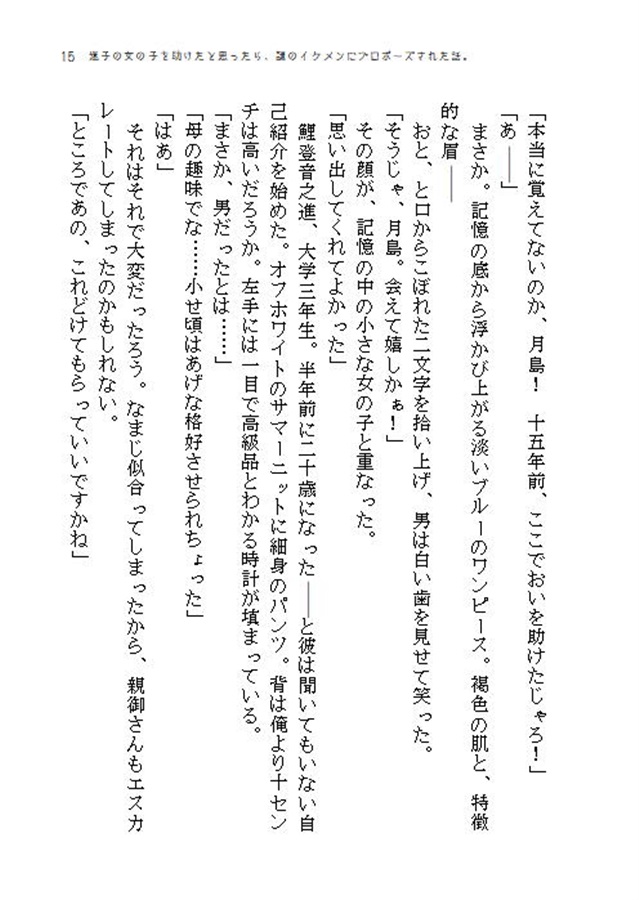 15 迷子の女の子を助けたと思ったら、謎のイケメンにプロポーズされた話。
「本当に覚えてないのか、月島！　十五年前、ここでおいを助けたじゃろ！」
「あ――」
　まさか。記憶の底から浮かび上がる淡いブルーのワンピース。褐色の肌と、特徴
的な眉――
　おと、と口からこぼれた二文字を拾い上げ、男は白い歯を見せて笑った。
「そうじゃ、月島。会えて嬉しかぁ！」
　その顔が、記憶の中の小さな女の子と重なった。
「思い出してくれてよかった」
　鯉登音之進、大学三年生。半年前に二十歳になった――と彼は聞いてもいない自
己紹介を始めた。オフホワイトのサマーニットに細身のパンツ。背は俺より十セン
チは高いだろうか。左手には一目で高級品とわかる時計が填まっている。
「まさか、男だったとは……」
「母の趣味でな……小せ頃はあげな格好させられちょった」
「はあ」
　それはそれで大変だったろう。なまじ似合ってしまったから、親御さんもエスカ
レートしてしまったのかもしれない。
「ところであの、これどけてもらっていいですかね」